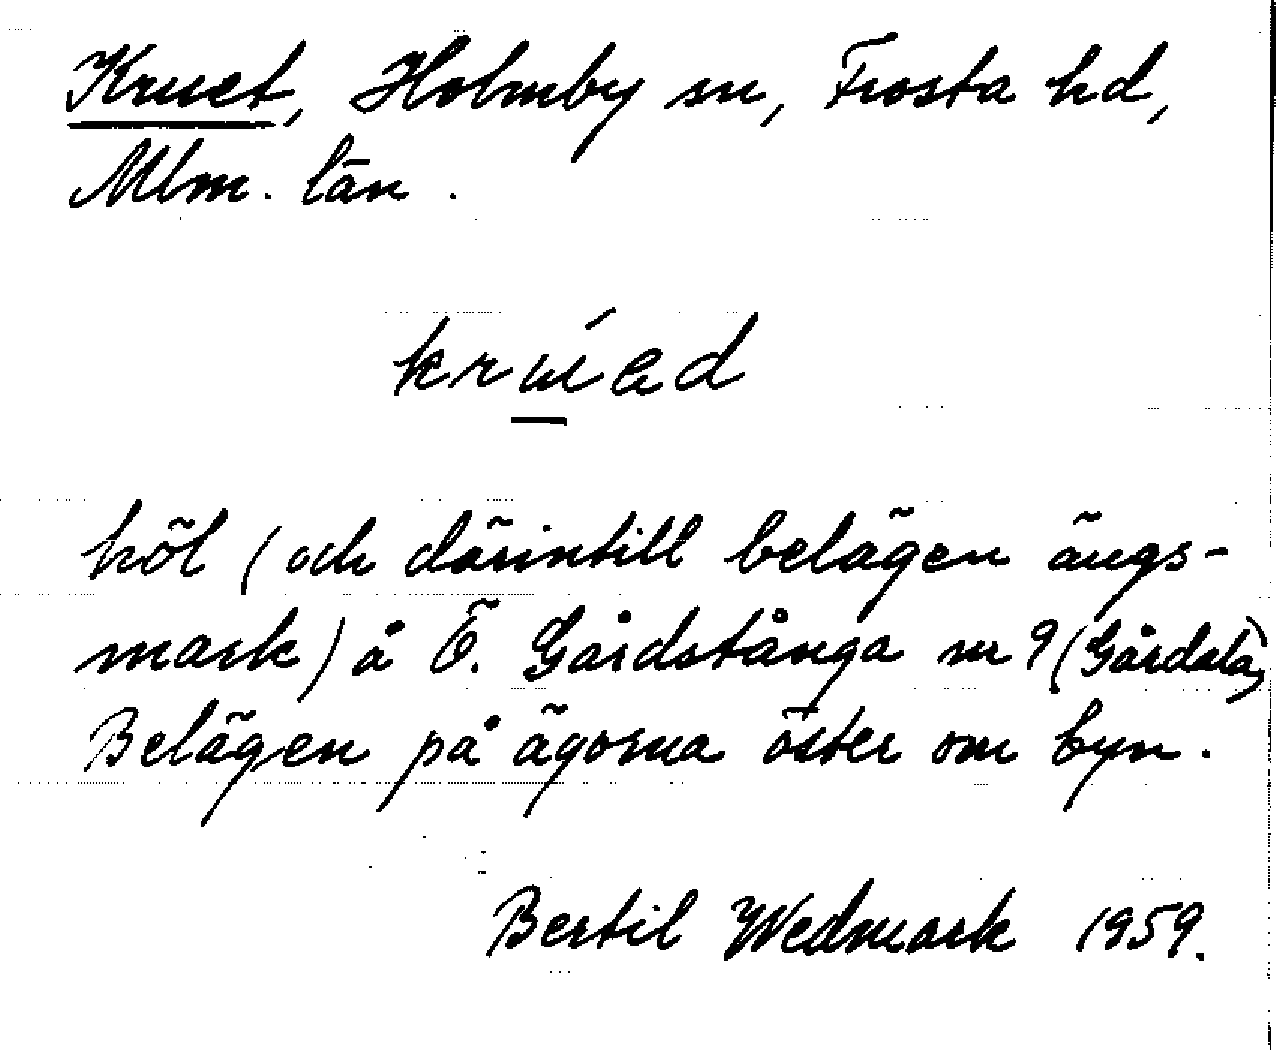 Kruet, Holmby sn, Frosta hd,
Mlm. län.
krúed
höl (och därintill belägen ängs-
mark) å Ö. Gårdstånga nr 9 (Gårdala)
Belägen på ägorna öster om byn.
Bertil Wedmark 1959.